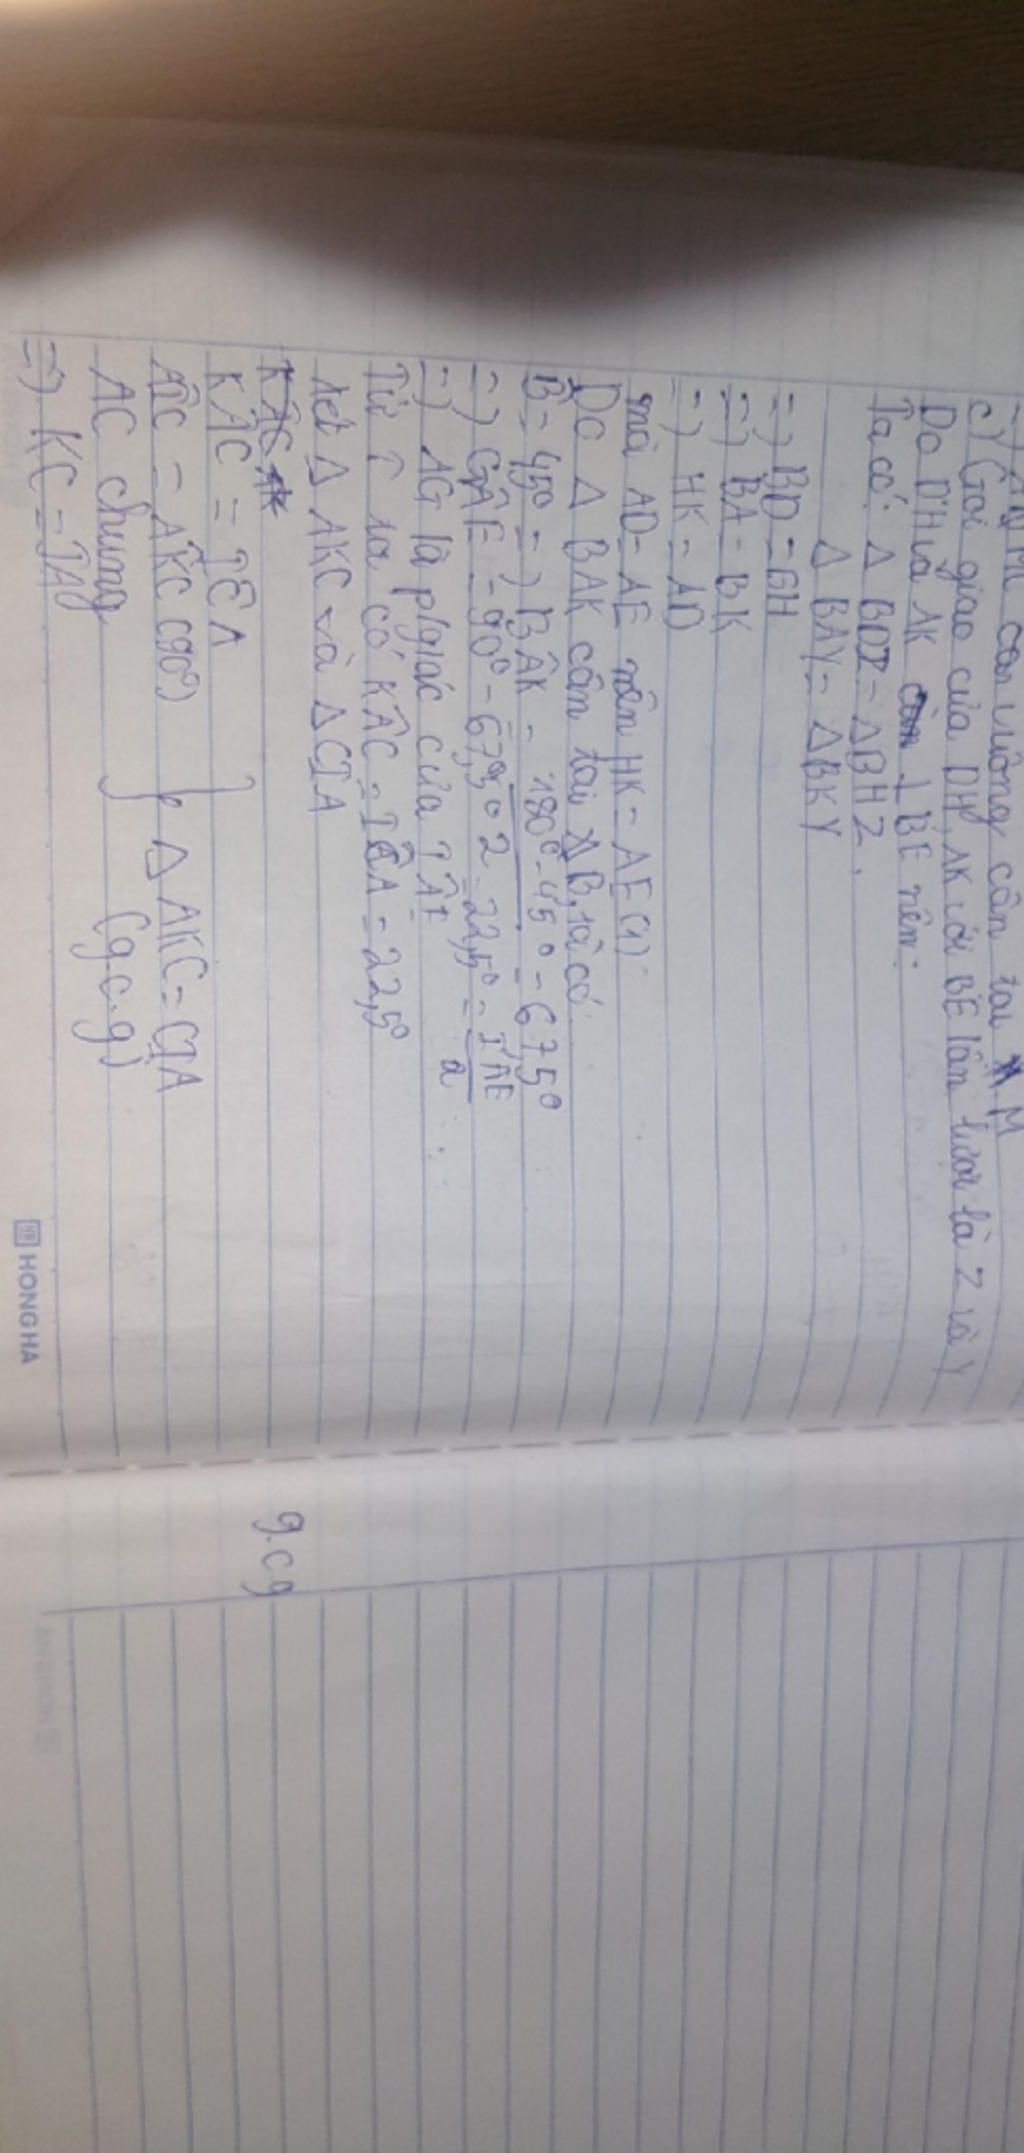 c) Gọi giao của DH, AK với BE lần lượt là Z và Y
Do DH và AK ⊥ BE nên:
Ta có: Δ BDZ = Δ BHZ,
Δ BAY = Δ BKY
=) BD = BH
=) BA = BK
=) HK = AD
mà AD = AE nên HK = AE (1)
Do Δ BAK cân tại B, ta có:
B̂ = 45° =) BÂK = 180° - 45° / 2 = 67,5°
=) GÂE = 90° - 67,5° = 22,5° = IÂE / 2
=) AG là p/giác của IÂE
Từ ta có KÂC = IĈA = 22,5°
Xét Δ AKC và Δ CIA
KÂC = IĈA
AÎC = AK̂C (90°)
AC chung
} Δ AKC = CIA
(g.c.g)
=) KC = IA
g.c.g
HONG HA